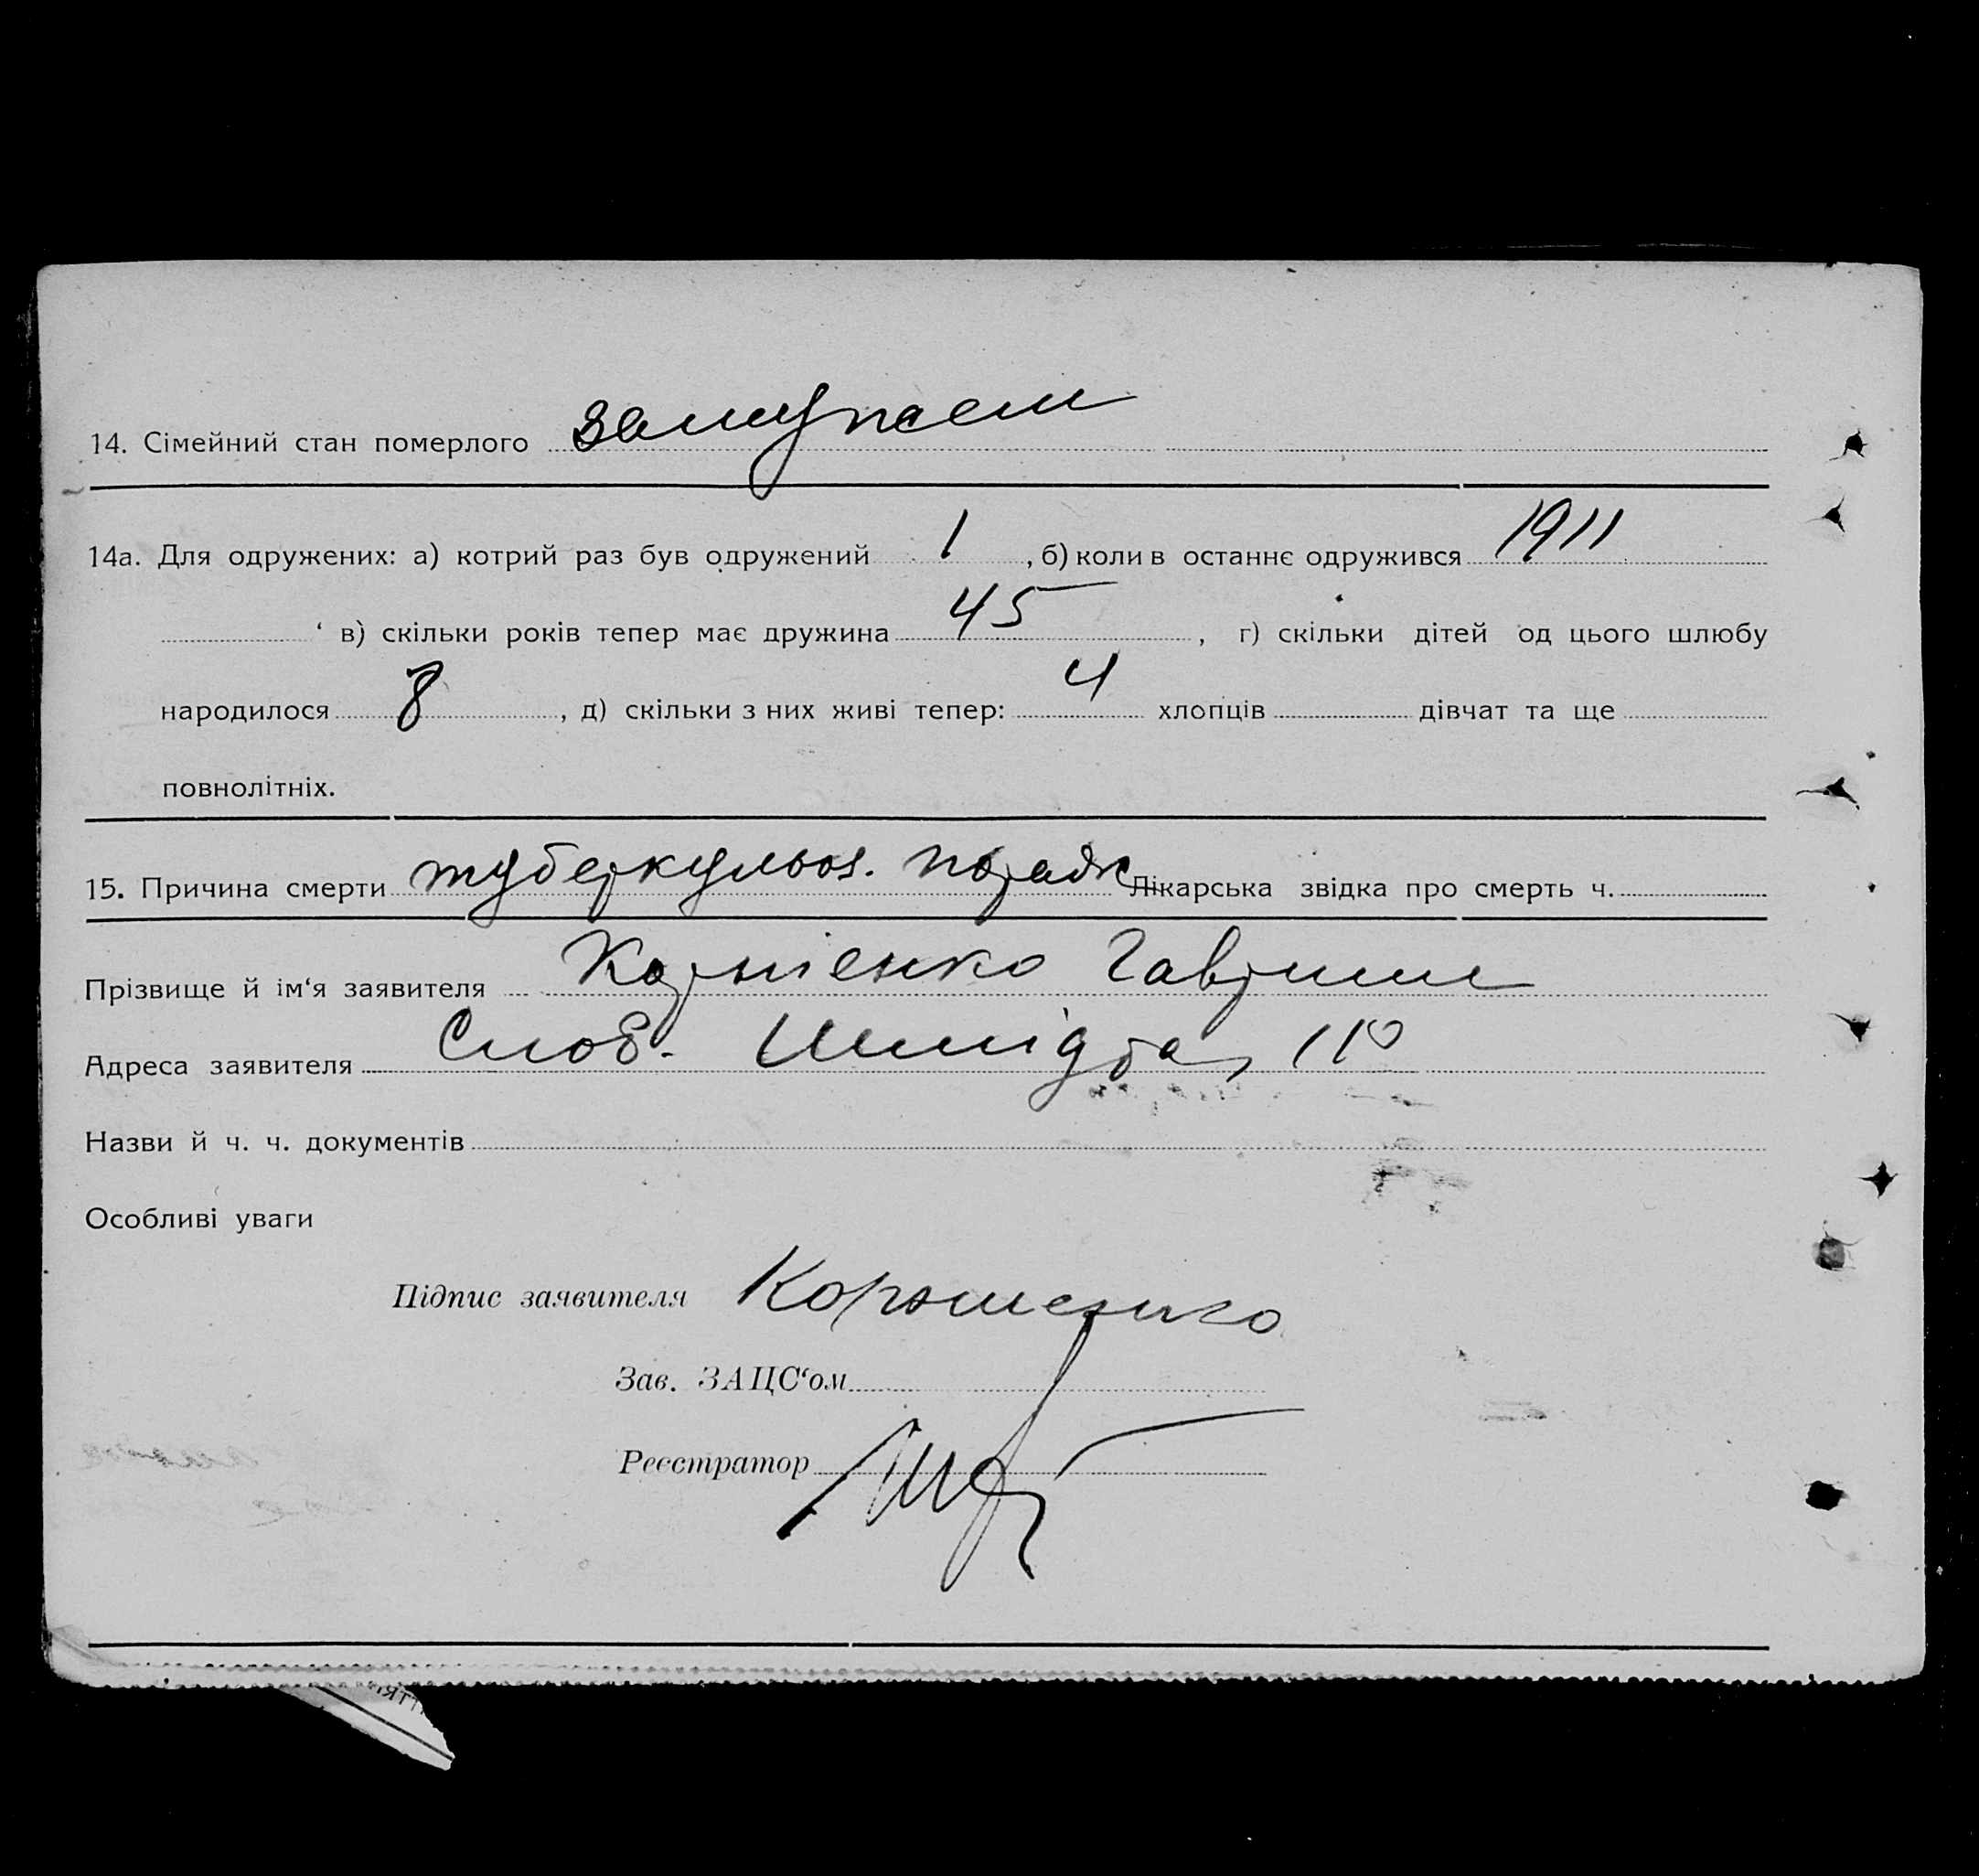 14. Сімейний стан померлого замужем
14а. Для одружених: а) котрий раз був одружений 1, б) коли в останнє одружився 1911
‘ в) скільки років тепер має дружина 45, г) скільки дітей од цього шлюбу
народилося 8, д) скільки з них живі тепер: 4 хлопців дівчат та ще
повнолітніх.
15. Причина смерти туберкульоз. Лікарська звідка про смерть ч.
Прізвище й ім‘я заявителя Корнієнко
Адреса заявителя Слоб. Шмідта, 110
Назви й ч. ч. документів
Особливі уваги
Підпис заявителя Корниенко
Зав. ЗАЦС‘ом
Реєстратор